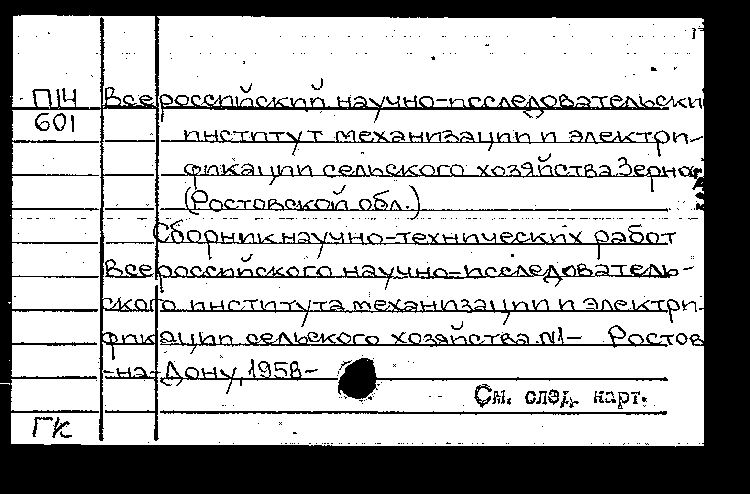 П14 Всероссийский научно-исследовательски
601 институт механизации и электри-
фикации сельского хозяйства. Зерно
(Ростовской обл.)
Сборник научно-технических работ
Всероссийского научно-исследователь-
ского института механизации и электри-
фикации сельского хозяйства. №1- Ростов
-на-Дону, 1958-
См. след. карт.
ГК